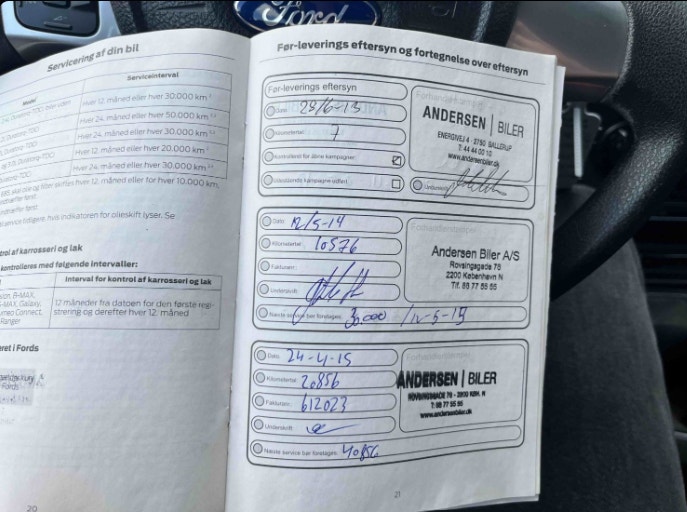 Ford
Servicering af din bil
Model
Serviceinterval
Hver 12. måned eller hver 30.000 km
Hver 24. måned eller hver 50.000 km
Hver 24. måned eller hver 30.000 km
Hver 12. måned eller hver 20.000 km
Hver 24. måned eller hver 30.000 km
skiftes hver 12. måned eller for hver 10.000 km.
service tidligere, hvis indikatoren for olieskift lyser. Se
karrosseri og lak
kontrolleres med følgende intervaller:
Interval for kontrol af karrosseri og lak
B-MAX,
S-MAX, Galaxy,
Connect,
Ranger
12 måneder fra datoen for den første reg-
istrering og derefter hver 12. måned
i Fords
20
Før-leverings eftersyn og fortegnelse over eftersyn
Før-leverings eftersyn
Dato:
Kilometertal:
7
Kontrolleret for åbne kampagner:
ANDERSEN | BILER
ENERGIVEJ 4 - 2750 BALLERUP
T: 44 44 00 12
www.andersenbiler.dk
Underskrift:
Dato: 12/5-14
Kilometertal: 10576
Fakturanr.:
Underskrift:
Næste service bør foretages: 30.000 / 12-5-15
Andersen Biler A/S
Rovsingsgade 76
2200 København N
Tlf. 88 77 55 55
Dato: 24-4-15
Kilometertal: 20856
Fakturanr.: 612023
Underskrift:
Næste service bør foretages: 40856
ANDERSEN | BILER
ROVSINGSGADE 76 - 2200 KBH. N
T: 88 77 55 55
www.andersenbiler.dk
21